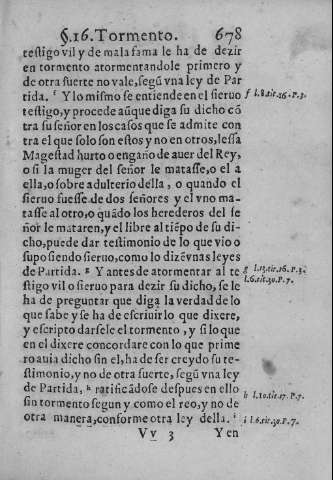 §.16. Tormento. 678
testigo vil y de mala fama le ha de dezir
en tormento atormentandole primero y
de otra suerte no vale, segũ vna ley de Par
tida. f Y lo mismo se entiende en el sieruo
f l.8.tit.16.P.3.
testigo, y procede aũque diga su dicho cõ
tra su señor en los casos que se admite con
tra el que solo son estos y no en otros, lessa
Magestad hurto o engaño de auer del Rey,
o si la muger del señor le matasse, o el a
ella, o sobre adulterio della, o quando el
sieruo fuesse de dos señores y el vno ma-
tasse al otro, o quãdo los herederos del se
ñor le mataren, y el libre al tiẽpo de su di-
cho, puede dar testimonio de lo que vio o
supo siendo sieruo, como lo dizẽ vnas leyes
de Partida. g Y antes de atormentar al te
g l.13.tit.16.P.3.
stigo vil o sieruo para dezir su dicho, se le
l.6.tit.30.P.7.
ha de preguntar que diga la verdad de lo
que sabe y se ha de escriuir lo que dixere,
y escripto darsele el tormento, y si lo que
en el dixere concordare con lo que prime
ro auia dicho sin el, ha de ser creydo su te-
stimonio, y no de otra suerte, segũ vna ley
de Partida, h ratificãdose despues en ello
h l.10.tit.17.P.7.
sin tormento segun y como el reo, y no de
otra manera, conforme otra ley della. i
i l.6.tit.30.P.7.
Vv 3 Y en